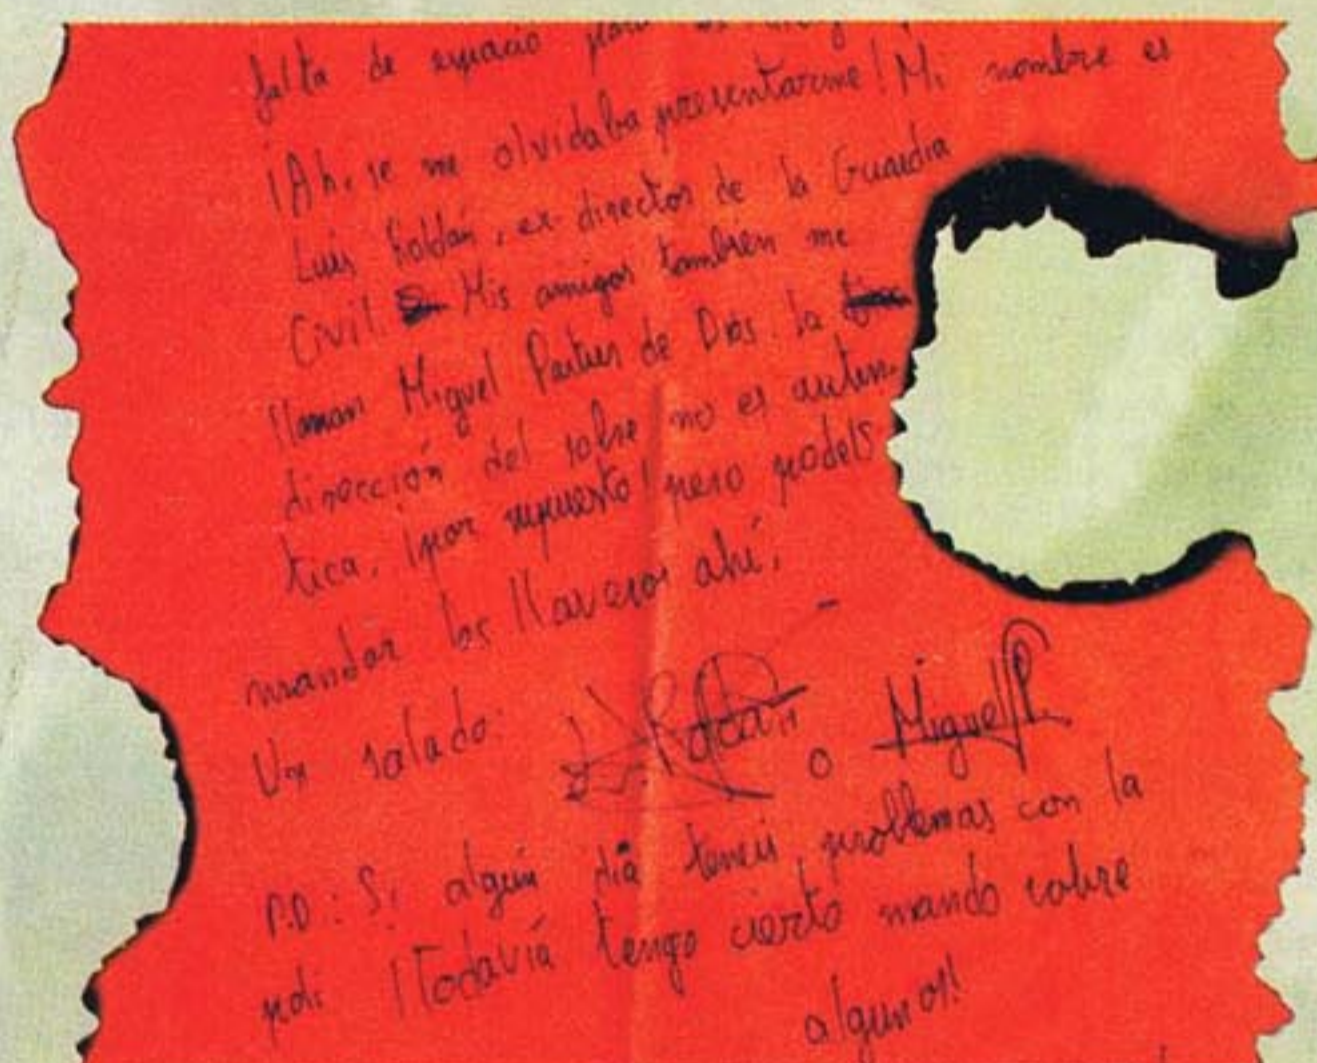 falta de espacio para
¡Ah, se me olvidaba presentarme! Mi nombre es
Luis Roldán, ex-director de la Guardia
Civil. Mis amigos también me
llaman Miguel Partus de Dios. La
dirección del sobre no es autén-
tica, ¡por supuesto! pero podeis
mandar los llaveros ahí.
Un salado: L. Roldán o Miguel P.
P.D: Si algún día teneis problemas con la
poli ¡Todavía tengo cierto mando sobre
algunos!